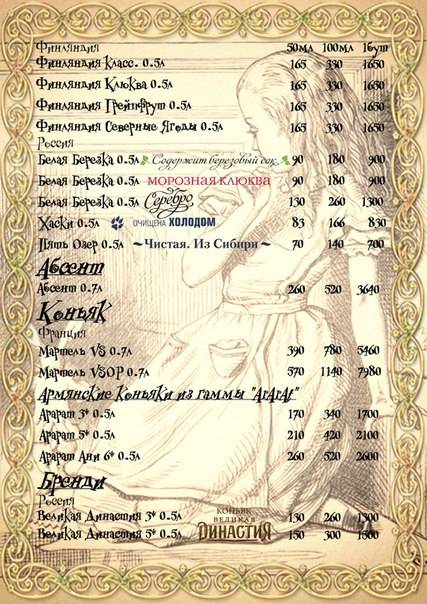 Финляндия 50мл 100мл 1бут
Финляндия Класс. 0.5л 165 330 1650
Финляндия Клюква 0.5л 165 330 1650
Финляндия Грейпфрут 0.5л 165 330 1650
Финляндия Северные Ягоды 0.5л 165 330 1650
Россия
Белая Березка 0.5л Содержит березовый сок 90 180 900
Белая Березка 0.5л МОРОЗНАЯ КЛЮКВА 90 180 900
Белая Березка 0.5л Серебро 130 260 1300
Хаски 0.5л ОЧИЩЕНА ХОЛОДОМ 83 166 830
Пять Озер 0.5л ~Чистая. Из Сибири~ 70 140 700
Абсент
Абсент 0.7л 260 520 3640
Коньяк
Франция
Мартель VS 0.7л 390 780 5460
Мартель VSOP 0.7л 570 1140 7980
Армянские коньяки из гаммы "ArArAt"
Арарат 3* 0.5л 170 340 1700
Арарат 5* 0.5л 210 420 2100
Арарат Ани 6* 0.5л 260 520 2600
Бренди
Россия
Великая Династия 3* 0.5л КОНЬЯК ВЕЛИКАЯ ДИНАСТИЯ 130 260 1300
Великая Династия 5* 0.5л 150 300 1500